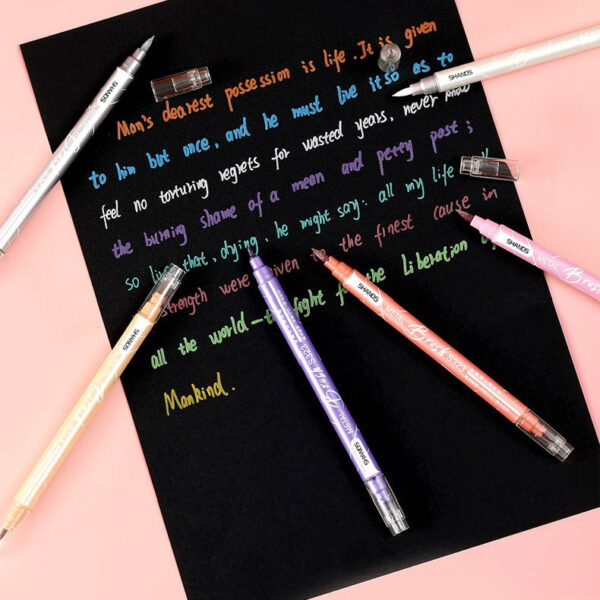 Man's dearest possession is life. It is given
to him but once, and he must live it so as to
feel no torturing regrets for wasted years, never know
the burning shame of a mean and petty past;
so live that, dying, he might say: all my life
strength were given the finest cause in
all the world—to fight for the Liberation
Mankind.
SHANDS
SHANDS
SHANDS METAL Brush
SHANDS METAL Brush S323
SHANDS METAL Brush S323
SHANDS